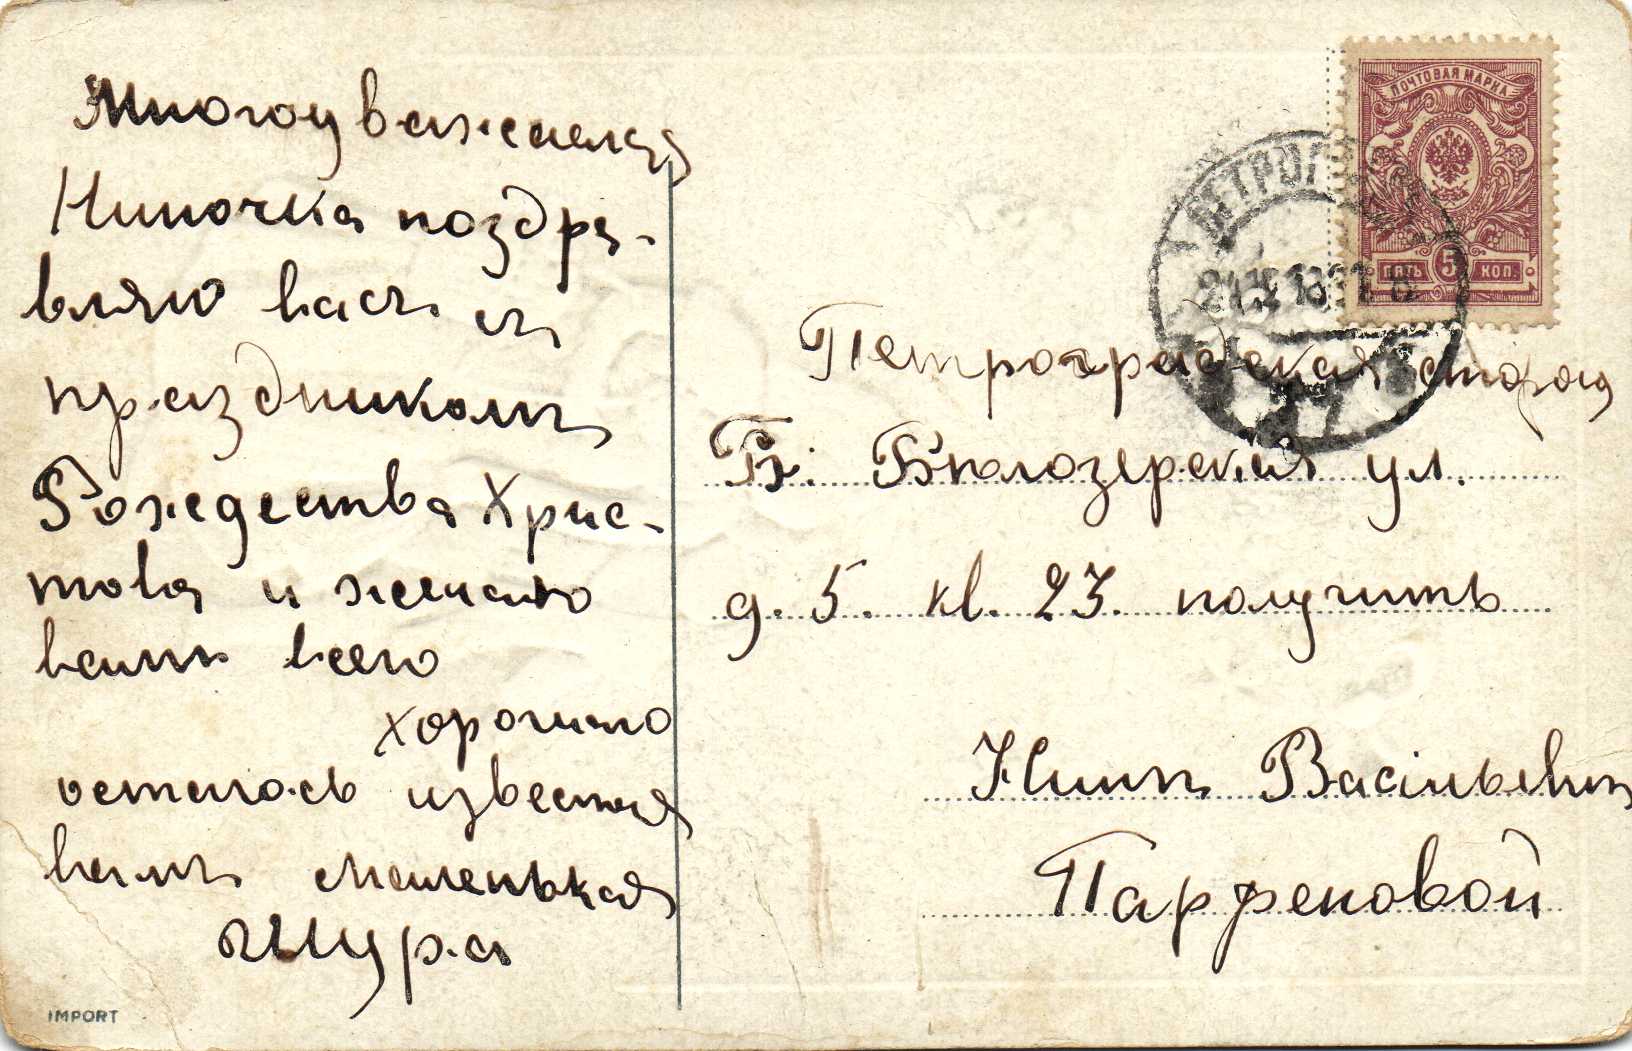 Многоуважаемая
Ниночка поздра-
вляю васъ съ
праздникомъ
Рождества Хрис-
това и желаю
вамъ всего
хорошаго
осталось известная
вамъ маленькая
Шура
IMPORT
ПОЧТОВАЯ МАРКА
ПЯТЬ 5 КОП.
ПЕТРОГРАДЪ
Петроградская сторона
Б. Бѣлозерская ул.
д. 5. кв. 23. получить
Нинѣ Васильевнѣ
Парфеновой